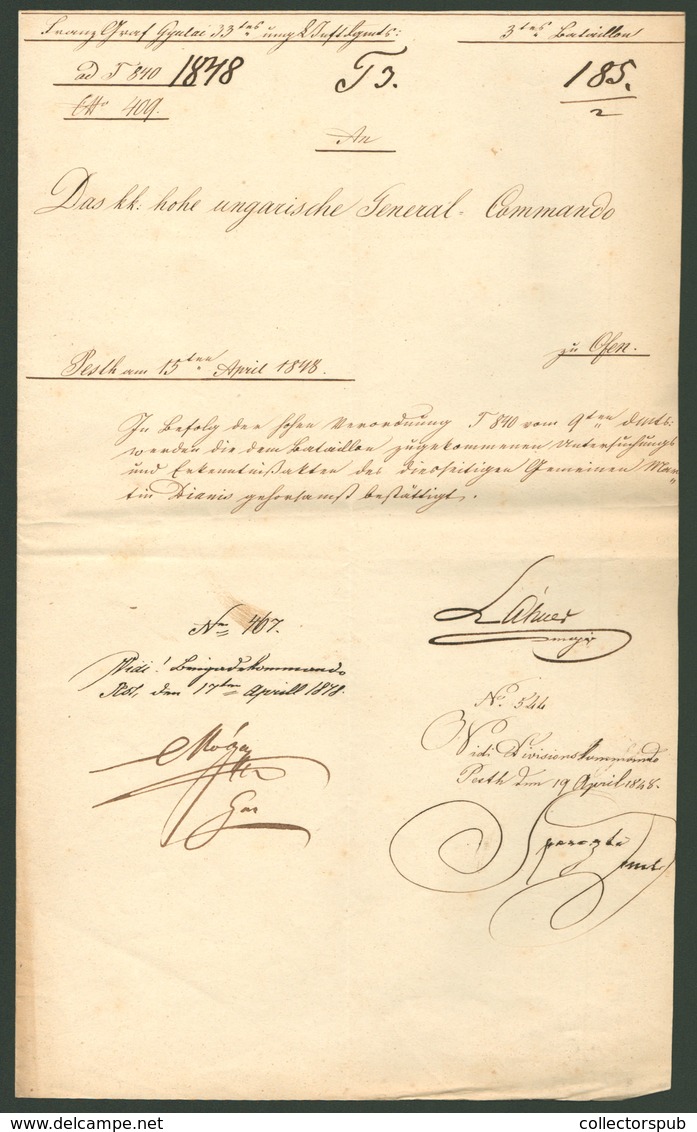 Franz Graf Gyulai 33tes ung L Inft Rgmts: 3tes Bataillon
ad T 840 1848 T 3. 185.
No 409. 2
An
Das kk: hohe ungarische General-Commando
zu Ofen.
Pesth am 15ten April 1848.
In Befolg der hohen Verordnung T 840 vom 9ten dMts:
werden die dem Bataillon zugekommenen Untersuchungs
und Erkenntnißakten des diesseitigen Gemeinen Mar„
tin Dianis gehorsamst bestättigt.
Láhner
major
No 467.
Vidi! Brigadekommando
Pest, den 17ten Aprill 1848.
Móga
No. 544
Vidi Divisionskommando
Pesth den 19 April 1848.
collectorspub